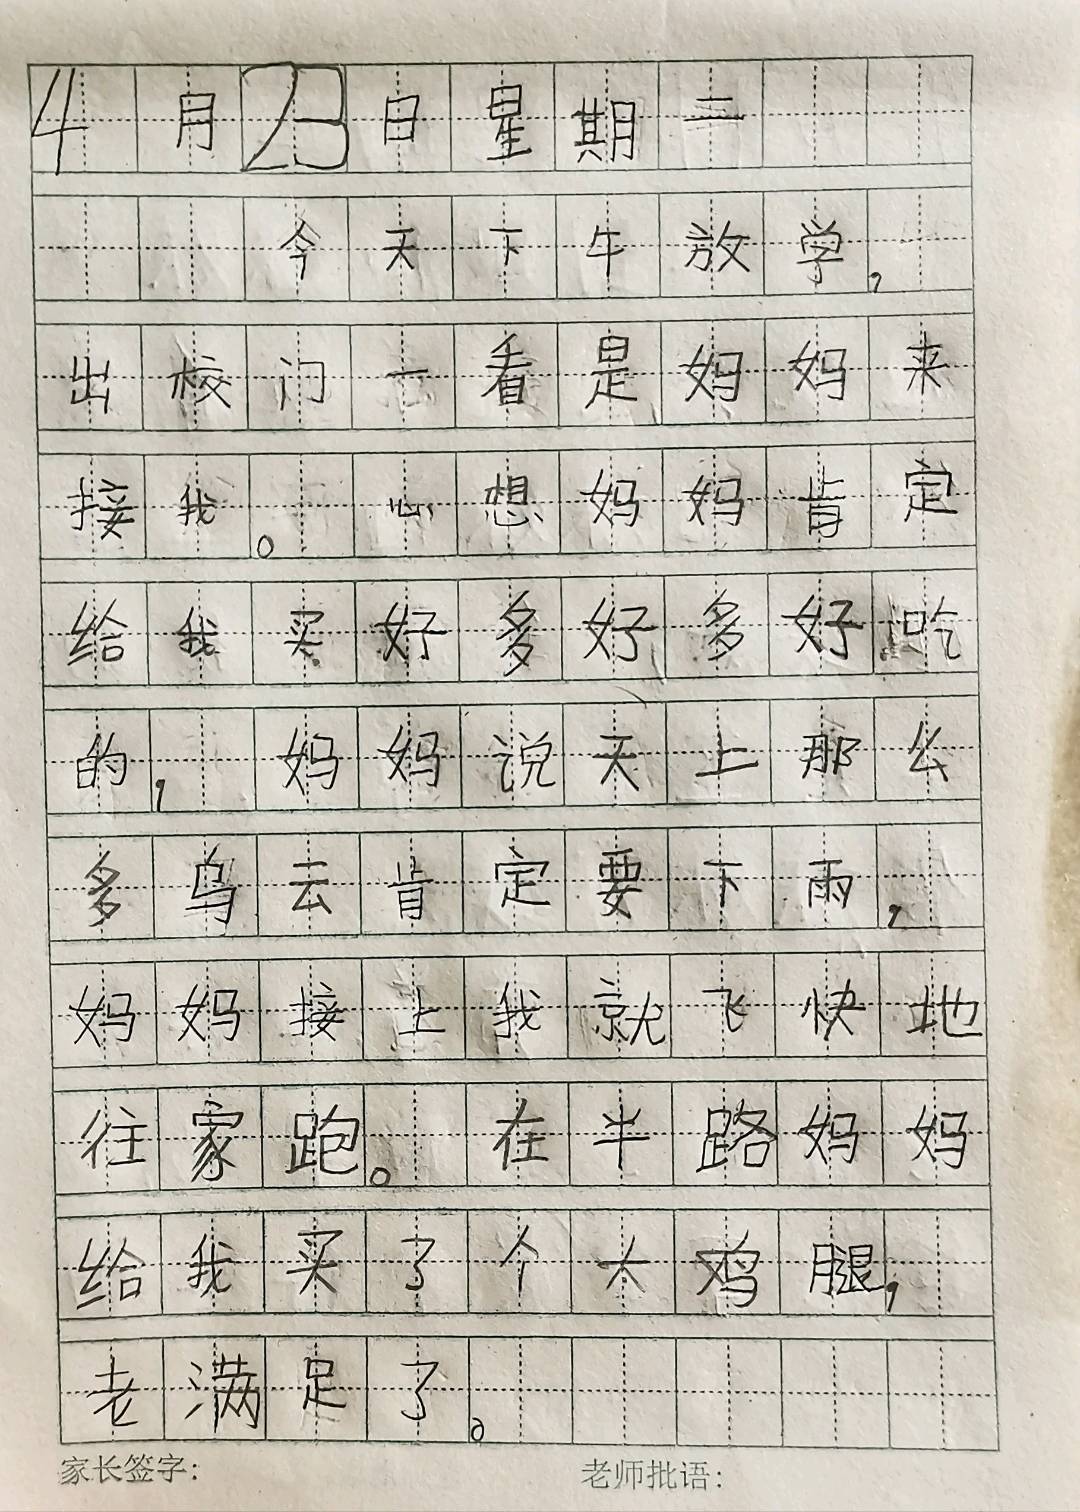 4月23日星期二
今天下午放学,
出校门一看是妈妈来
接我。心想妈妈肯定
给我买好多好多好吃
的,妈妈说天上那么
多乌云肯定要下雨,
妈妈接上我就飞快地
往家跑。在半路妈妈
给我买了个大鸡腿,
老满足了。
家长签字: 老师批语: